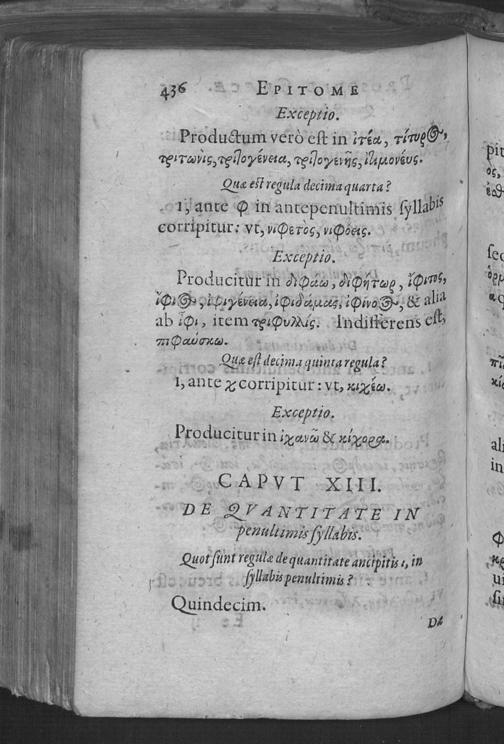 436 EPITOME
Exceptio.
Productum verò est in ἰτέα, τίτυρος,
τριτωνὶς, τριτογένεια, τριτογενὴς, ἰτιμονέυς.
Quæ est regula decima quarta?
ι, ante φ in antepenultimis syllabis
corripitur: vt, νιφετὸς, νιφόεις.
Exceptio.
Producitur in διφάω, διφήτωρ, ἴφιτος,
ἴφιος, ἰφιγένεια, ἰφιδάμας, ἰφίνοος, & alia
ab ἶφι, item τριφυλλίς. Indifferens est,
πιφαύσκω.
Quæ est decima quinta regula?
ι, ante χ corripitur: vt, κιχέω.
Exceptio.
Producitur in ἰχανῶ & κίχορα.
CAPVT XIII.
DE QVANTITATE IN
penultimis syllabis.
Quot sunt regulæ de quantitate ancipitis ι, in
syllabis penultimis?
Quindecim.
Da